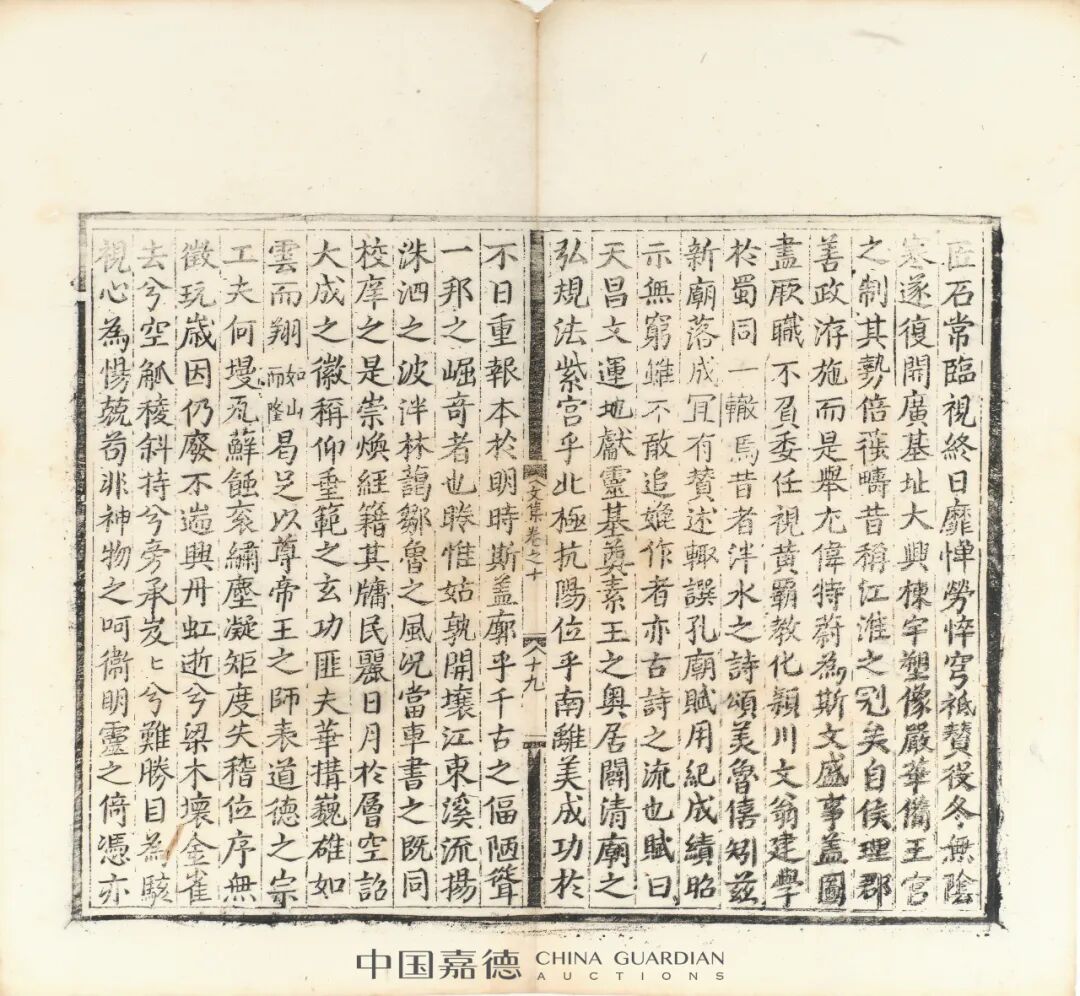 匠石常臨視終日靡憚勞悴穹祇贊役冬無陰
寒遂復開廣基址大興棟宇塑像嚴華僃王宮
之制其勢倍蓰疇昔稱江淮之冠矣自侯理郡
善政洊施而是舉尤偉特蔚為斯文盛事盖圖
盡厥職不負委任視黃霸教化穎川文翁建學
於蜀同一轍焉昔者泮水之詩頌美魯僖矧茲
新廟落成冝有賛述輙譔孔廟賦用紀成績昭
示無窮雖不敢追媲作者亦古詩之流也賦曰
天昌文運地獻靈基奠素王之奥居闢清廟之
弘規法紫宫乎北極抗陽位乎南離美成功於
文集卷之十
十九
不日重報本於明時斯盖廓乎千古之偪陋聳
一邦之崛奇者也睠惟姑孰開壤江東溪流揚
洙泗之波泮林藹鄒魯之風况當車書之既同
校庠之是崇煥經籍其牖民麗日月於層空詔
大成之徽稱仰垂範之玄功匪夫華搆巍碓如
雲而翔如山而隆曷足以尊帝王之師表道德之宗
工夫何墁瓦蘚蝕衮繡塵凝矩度失稽位序無
徵玩歲因仍廢不耑興丹虹逝兮梁木壞金雀
去兮空觚稜斜持兮旁承岌〻兮難勝目為駭
視心為惕兢苟非神物之呵衞明靈之倚憑亦
中国嘉德 CHINA GUARDIAN
AUCTIONS